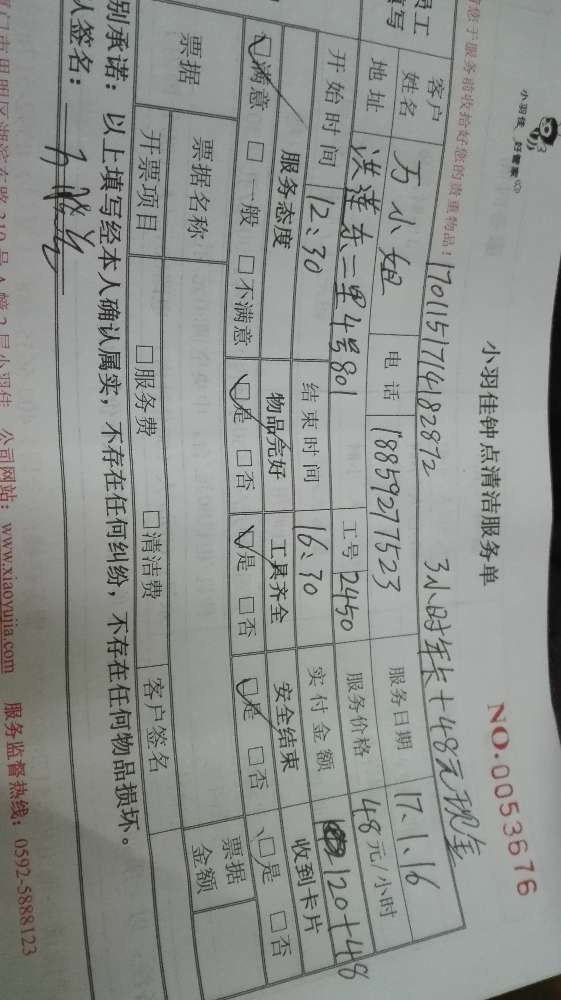 小羽佳 好管家
小羽佳钟点清洁服务单
NO.0053676
您于服务前收拾好您的贵重物品!
17011517141 82872 3小时年卡+48元现金
员工
填写
客户
姓名 万小姐 电话 18859277523 服务日期 17.1.16
地址 洪莲东二里4号801 工号 2450 服务价格 48元/小时
开始时间 12:30 结束时间 16:30 实付金额 120+48
服务态度 物品完好 工具齐全 安全结束 收到卡片
☑满意 □一般 □不满意 ☑是 □否 ☑是 □否 ☑是 □否 ☑是 □否
票据 票据名称 票据
金额
开票项目 □服务费 □清洁费 客户签名
别承诺:以上填写经本人确认属实,不存在任何纠纷,不存在任何物品损坏。
人签名:
小羽佳 公司网站:www.xiaoyujia.com 服务监督热线:0592-5888123